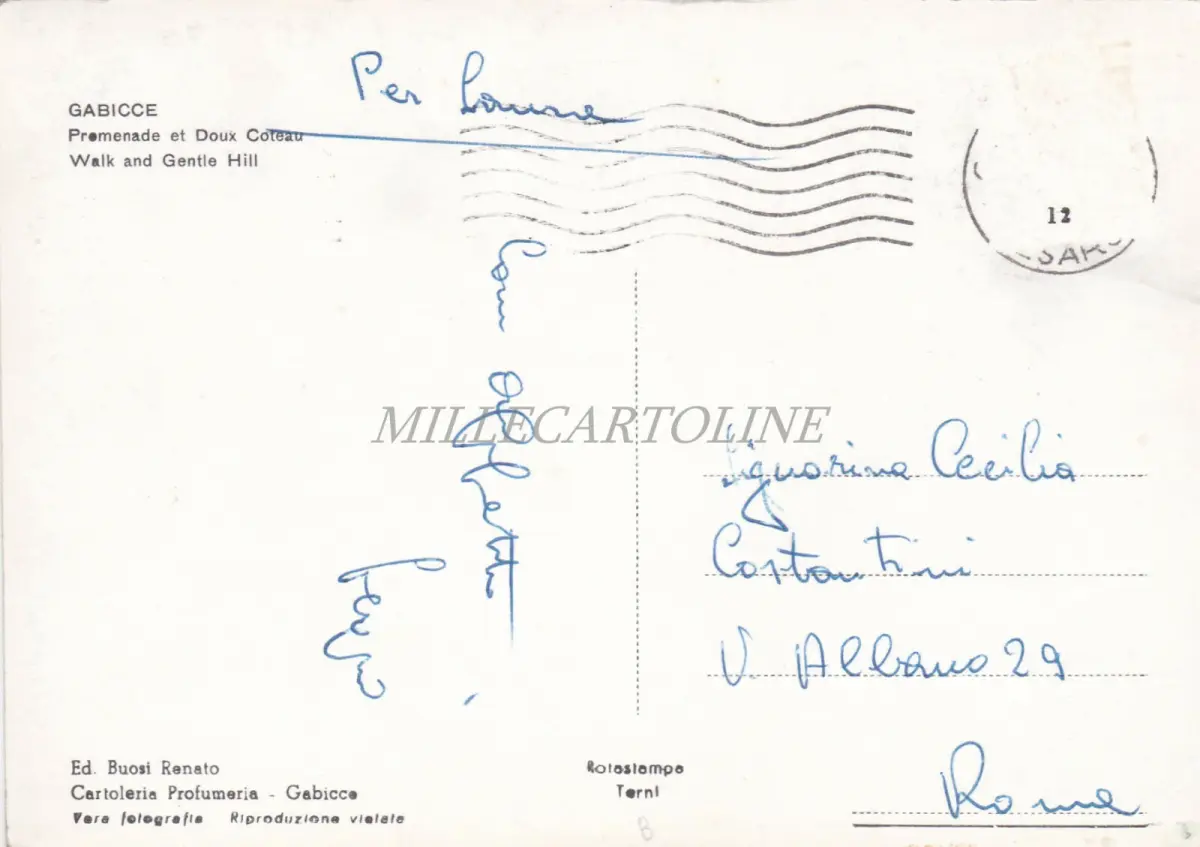 GABICCE
Promenade et Doux Coteau
Walk and Gentle Hill
Per
12
Con affetto
MILLECARTOLINE
Signorina Cecilia
Costantini
V. Albano 29
Roma
Ed. Buosi Renato
Cartoleria Profumeria - Gabicce
Vera fotografia Riproduzione vietata
Rotostampa
Terni
B